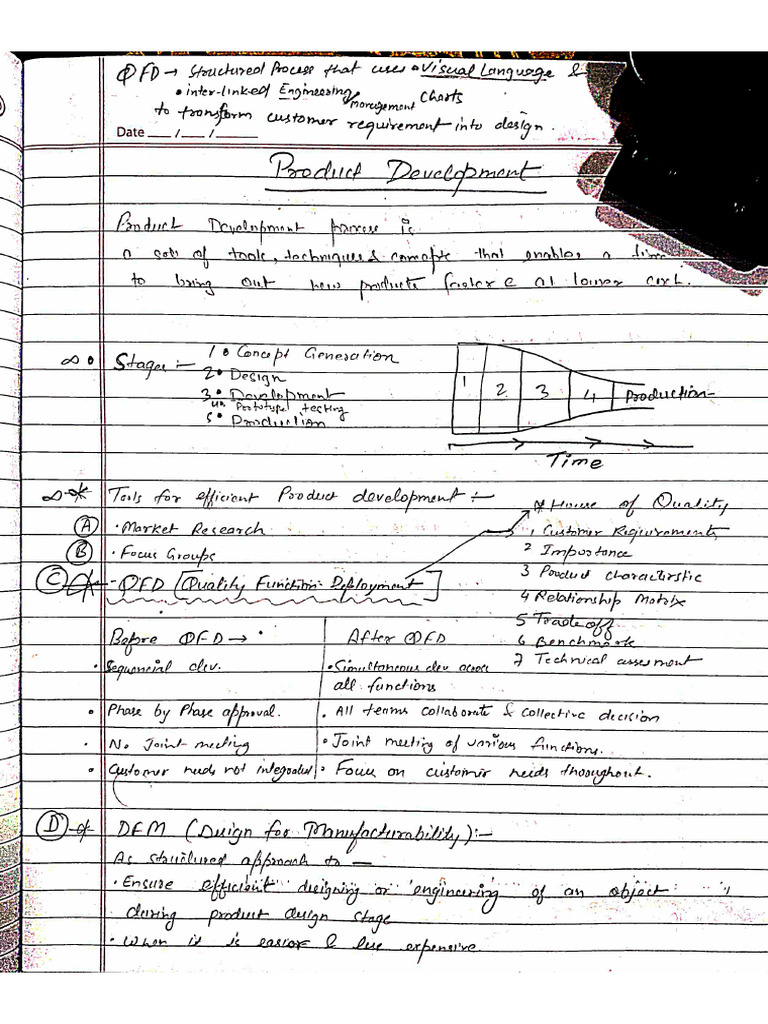 QFD → Structured Process that uses • Visual Language &
• inter-linked Engineering & management charts
to transform customer requirement into design.
Date ___ / ___ / ______
Product Development
Product Development process is
a sets of tools, techniques & concepts that enables a
to bring out new products faster & at lower cost.
Stages :-
1• Concept Generation
2• Design
3• Development
4• Prototype testing
5• Production
1 2 3 4 Production
Time
Tools for efficient Product development :-
(A) • Market Research
(B) • Focus Groups
(C) QFD [Quality Function Deployment]
* House of Quality
1 Customer Requirements
2 Importance
3 Product charactirstic
4 Relationship Matrix
5 Trade off
6 Benchmark
7 Technical assesment
Before QFD → •
After QFD
• Sequencial dev.
• Simultaneous dev across
all functions
• Phase by Phase approval.
• All teams collaborate & collective decision
• No Joint meeting
• Joint meeting of various functions.
• Customer needs not integrated
• Focus on customer needs throughout.
(D) * DFM (Design for Manufacturability) :-
As structured approach to —
• Ensure efficient designing or engineering of an object
during product design stage
• When it is easier & less expensive.